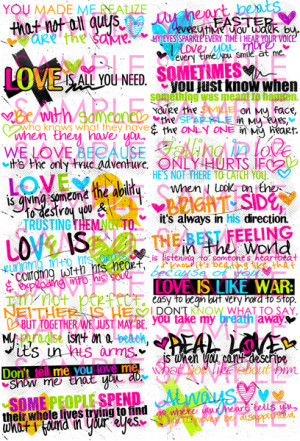 YOU MADE ME REALIZE
that not all guys
are the same.
LOVE IS ALL YOU NEED.
Be with someone
who knows what they have
when they have you.
WE LOVE BECAUSE
it's the only true adventure.
LOVE
is giving someone the ability
to destroy you &
TRUSTING THEM NOT TO.
LOVE IS
running into his arms,
colliding with his heart,
& exploding into his soul.
I'm not perfect.
NEITHER IS HE.
BUT TOGETHER WE JUST MAY BE.
My paradise isn't on a beach
it's in his arms.
Don't tell me you love me,
show me that you do.
SOME PEOPLE SPEND
their whole lives trying to find
what I found in your eyes.
My heart beats
FASTER
everytime you walk by,
MY EYES SPARKLE EVERY TIME I HEAR YOUR VOICE
I love you more
every time you smile at me.
SOMETIMES
you just know when
something was meant to happen.
You're the smile on my face,
the SPARKLE in my eyes,
& the ONLY ONE in my heart.
Falling in love
ONLY HURTS IF
HE'S NOT THERE TO CATCH YOU.
When I look on the
BRIGHT SIDE,
it's always in his direction.
THE BEST FEELING
in the world
is listening to someone's heartbeat
& knowing it beats like that
because of you.
LOVE IS LIKE WAR:
easy to begin but very hard to stop.
I DON'T KNOW WHAT TO SAY,
you take my breath away.
REAL LOVE
is when you can't describe
what you like about him
Always
go where your heart tells you,